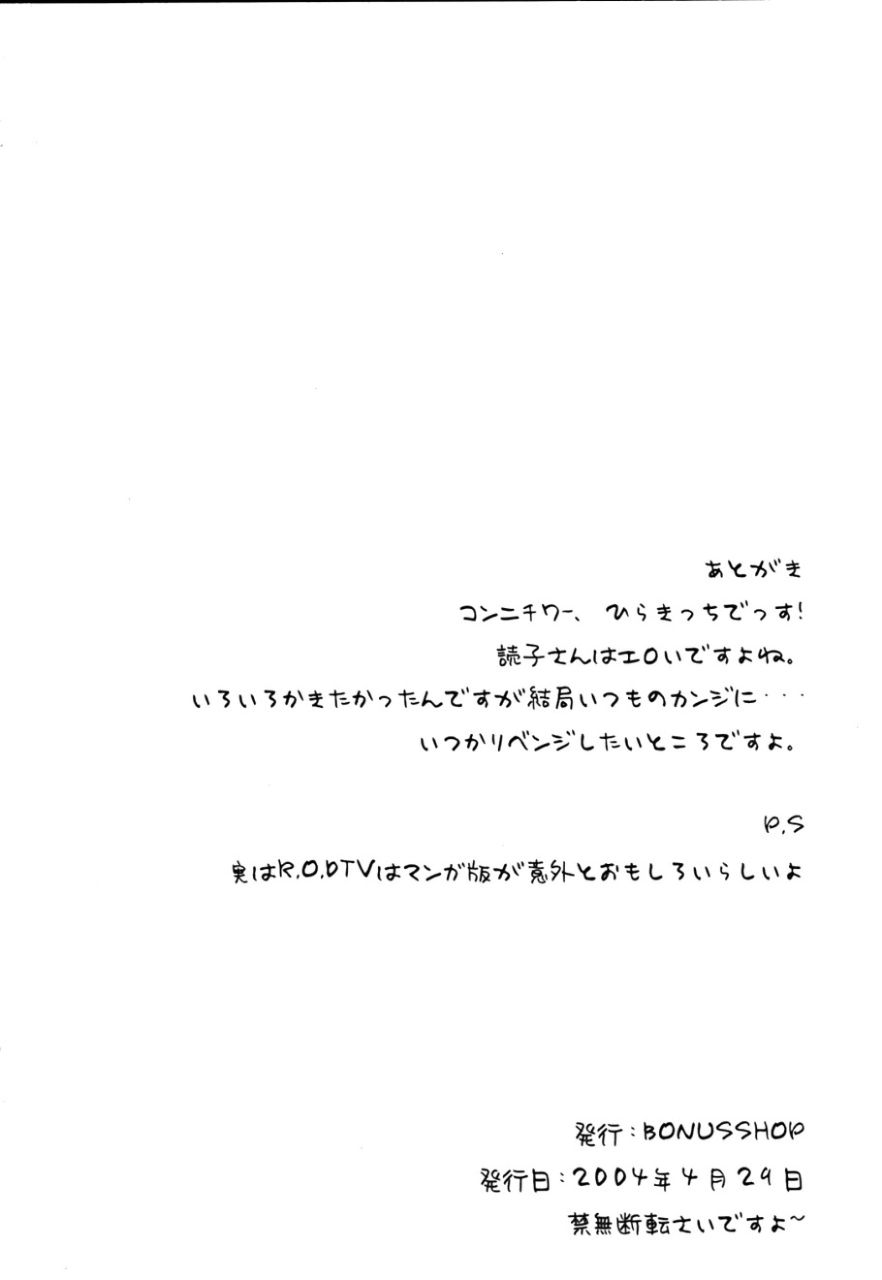 あとがき
コンニチワー、ひらきっちでっす!
読子さんはエロいですよね。
いろいろかきたかったんですが結局いつものカンジに・・・
いつかリベンジしたいところですよ。
P.S
実はR.O.DTVはマンガ版が意外とおもしろいらしいよ
発行:BONUSSHOP
発行日:2004年4月29日
禁無断転さいですよ~